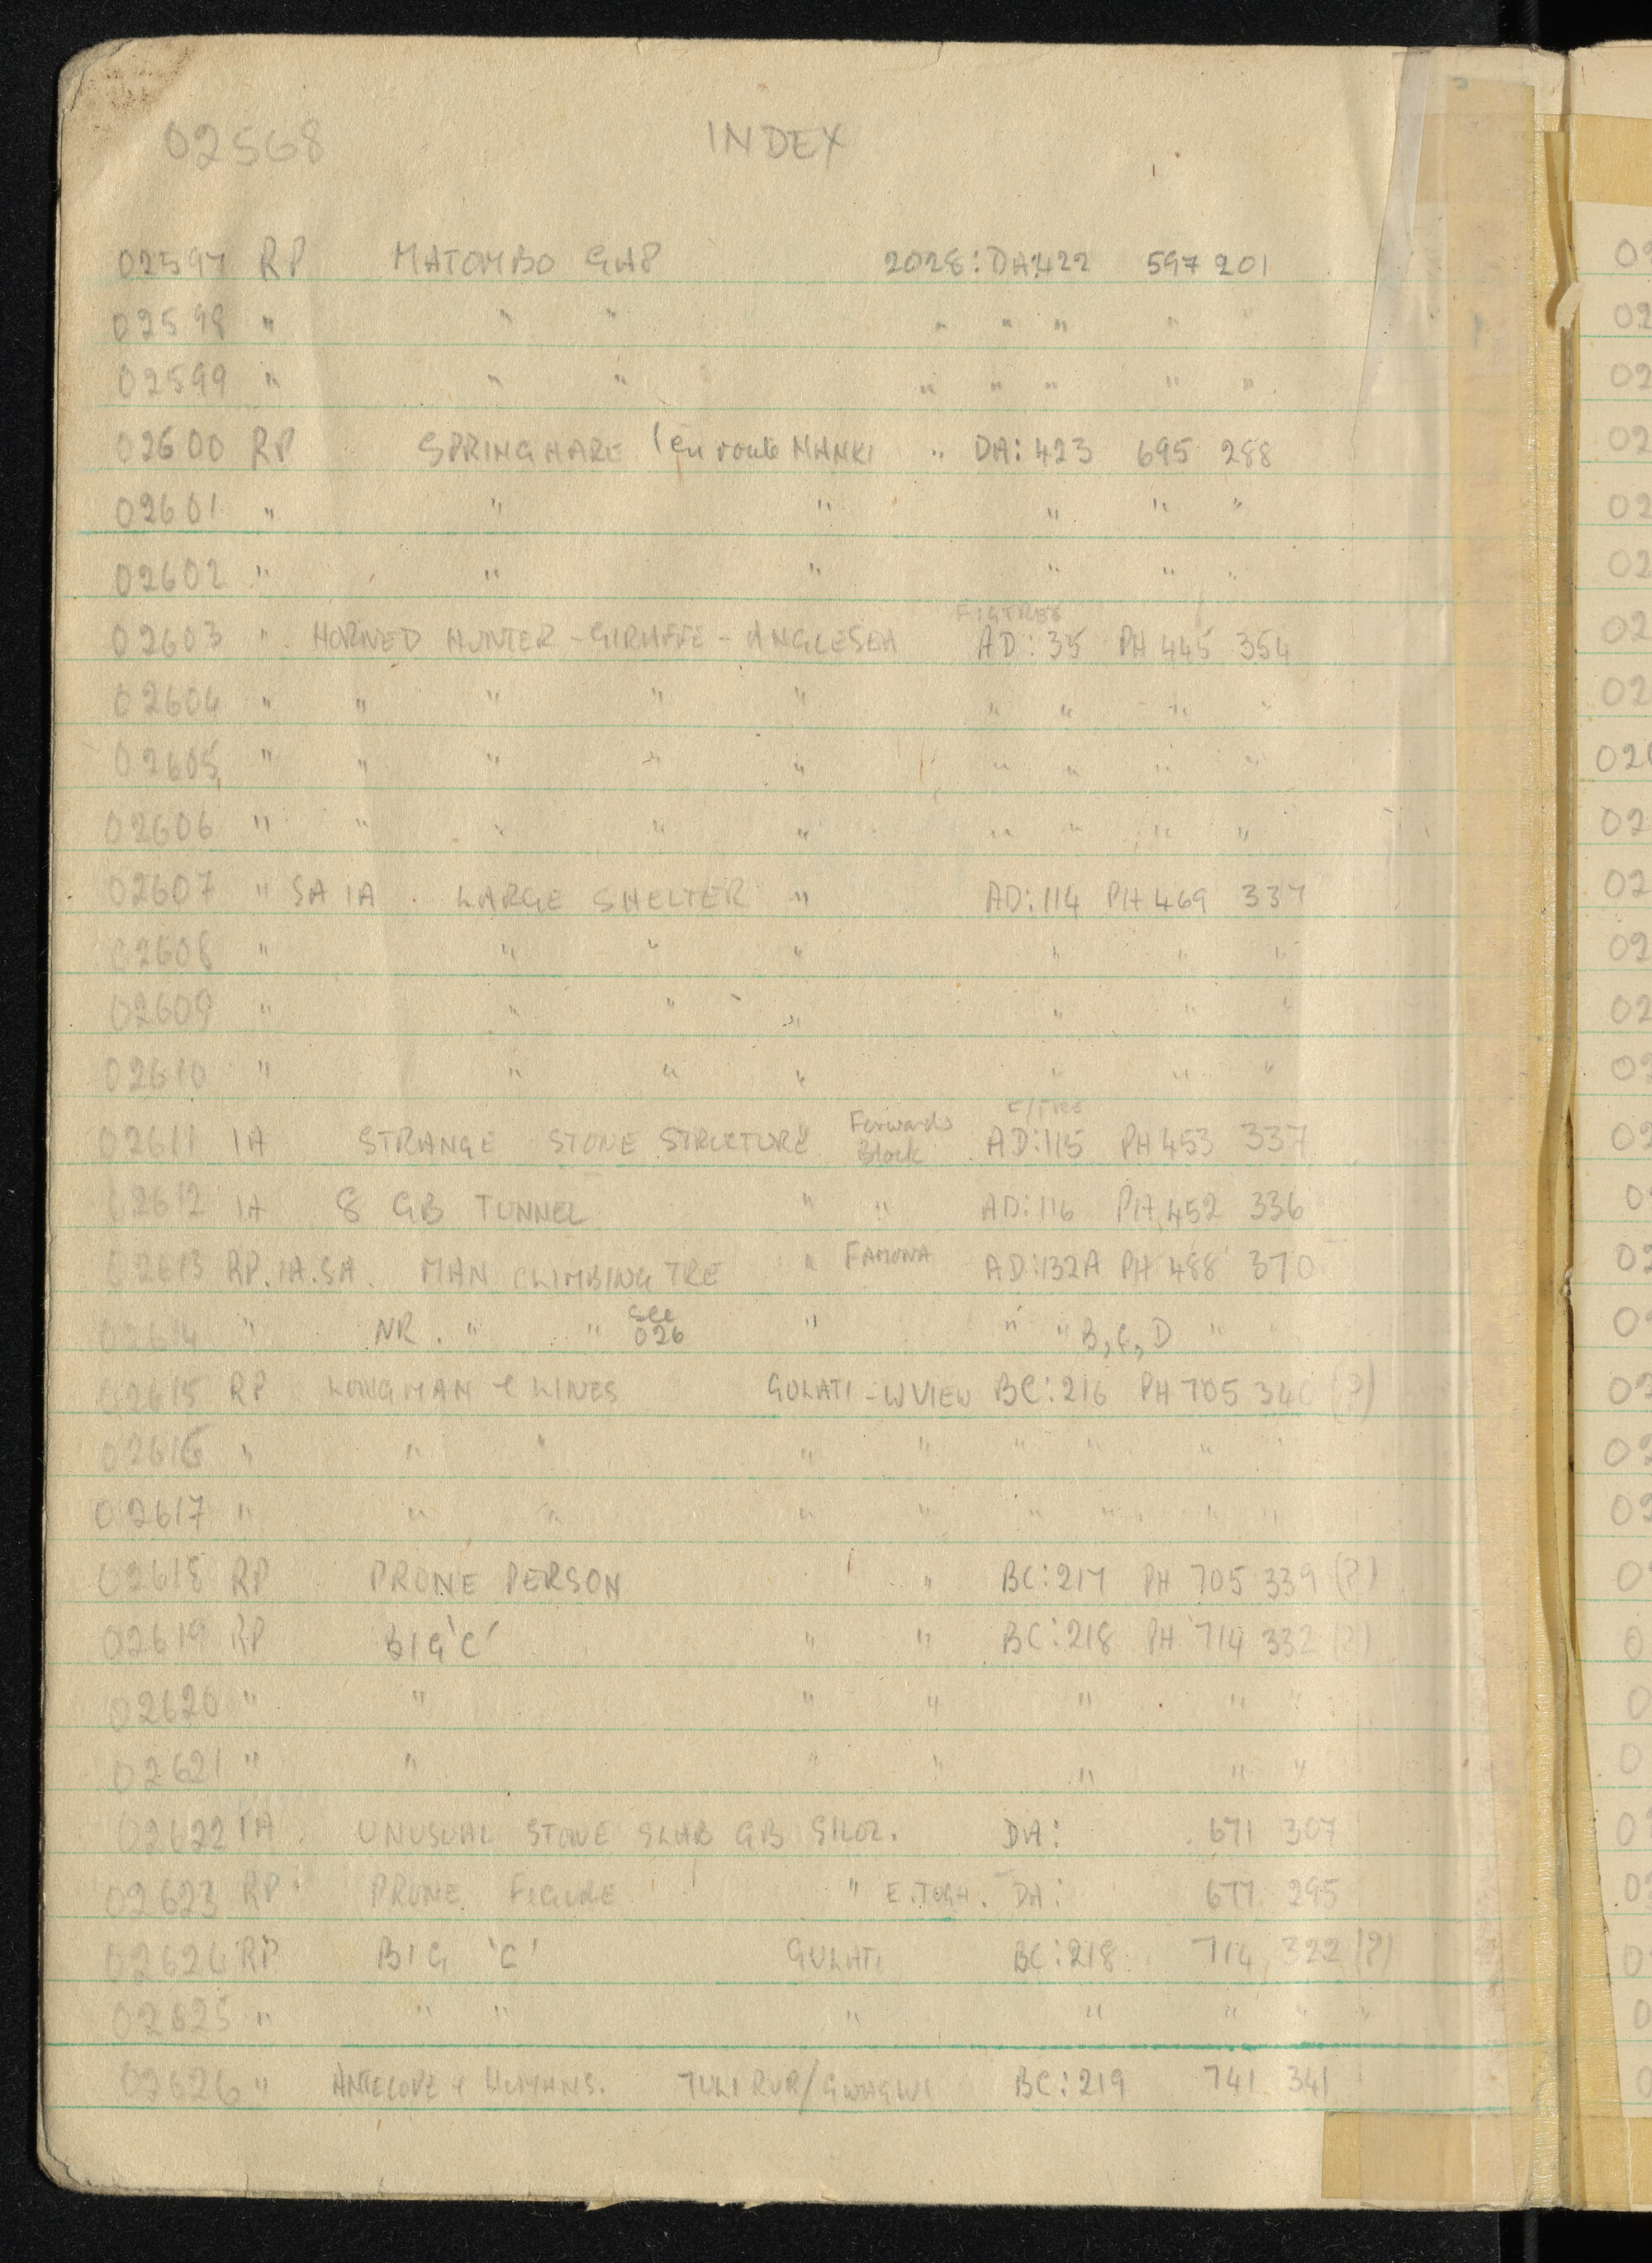 02568 INDEX
02597 RP MATOMBO GAP 2028:DA422 597 201
02598 " " " " " " " "
02599 " " " " " " " "
02600 RP SPRINGHARE (en route MHNKI " DA: 423 695 288
02601 " " " " " "
02602 " " " " " "
FIGTREE
02603 " HORNED HUNTER - GIRAFFE - ANGLESEA AD: 35 PH 445 354
02604 " " " " " " " " "
02605 " " " " " " " " "
02606 " " " " " " " " "
02607 " SA IA . LARGE SHELTER " AD:114 PH 469 337
02608 " " " " " " "
02609 " " " " " " "
02610 " " " " " " "
02611 IA STRANGE STONE STRUCTURE " Forwards Block AD:115 PH 453 337
02612 IA 8 GB TUNNEL " " AD:116 PH 452 336
02613 RP.IA.SA. MAN CLIMBING TRE " FAMONA AD:132A PH 488 370
02614 " NR. " " see 026 " " " B, C, D " "
02615 RP LONGMAN & LINES GULATI - WVIEW BC:216 PH 705 340 (?)
02616 " " " " " " " " "
02617 " " " " " " " " "
02618 RP PRONE PERSON " BC:217 PH 705 339 (?)
02619 RP BIG 'C' " " BC:218 PH 714 332 (?)
02620 " " " " " " "
02621 " " " " " " "
02622 IA UNUSUAL STONE SLAB GB SILOZ. DA: 671 307
02623 RP PRONE FIGURE " E.TOGH. DA: 677 295
02624 RP BIG 'C' GULATI BC:218 714 322 (?)
02625 " " " " " " " "
02626 " ANTELOPE & HUMANS. TULI RVR/GWAGWI BC:219 741 341